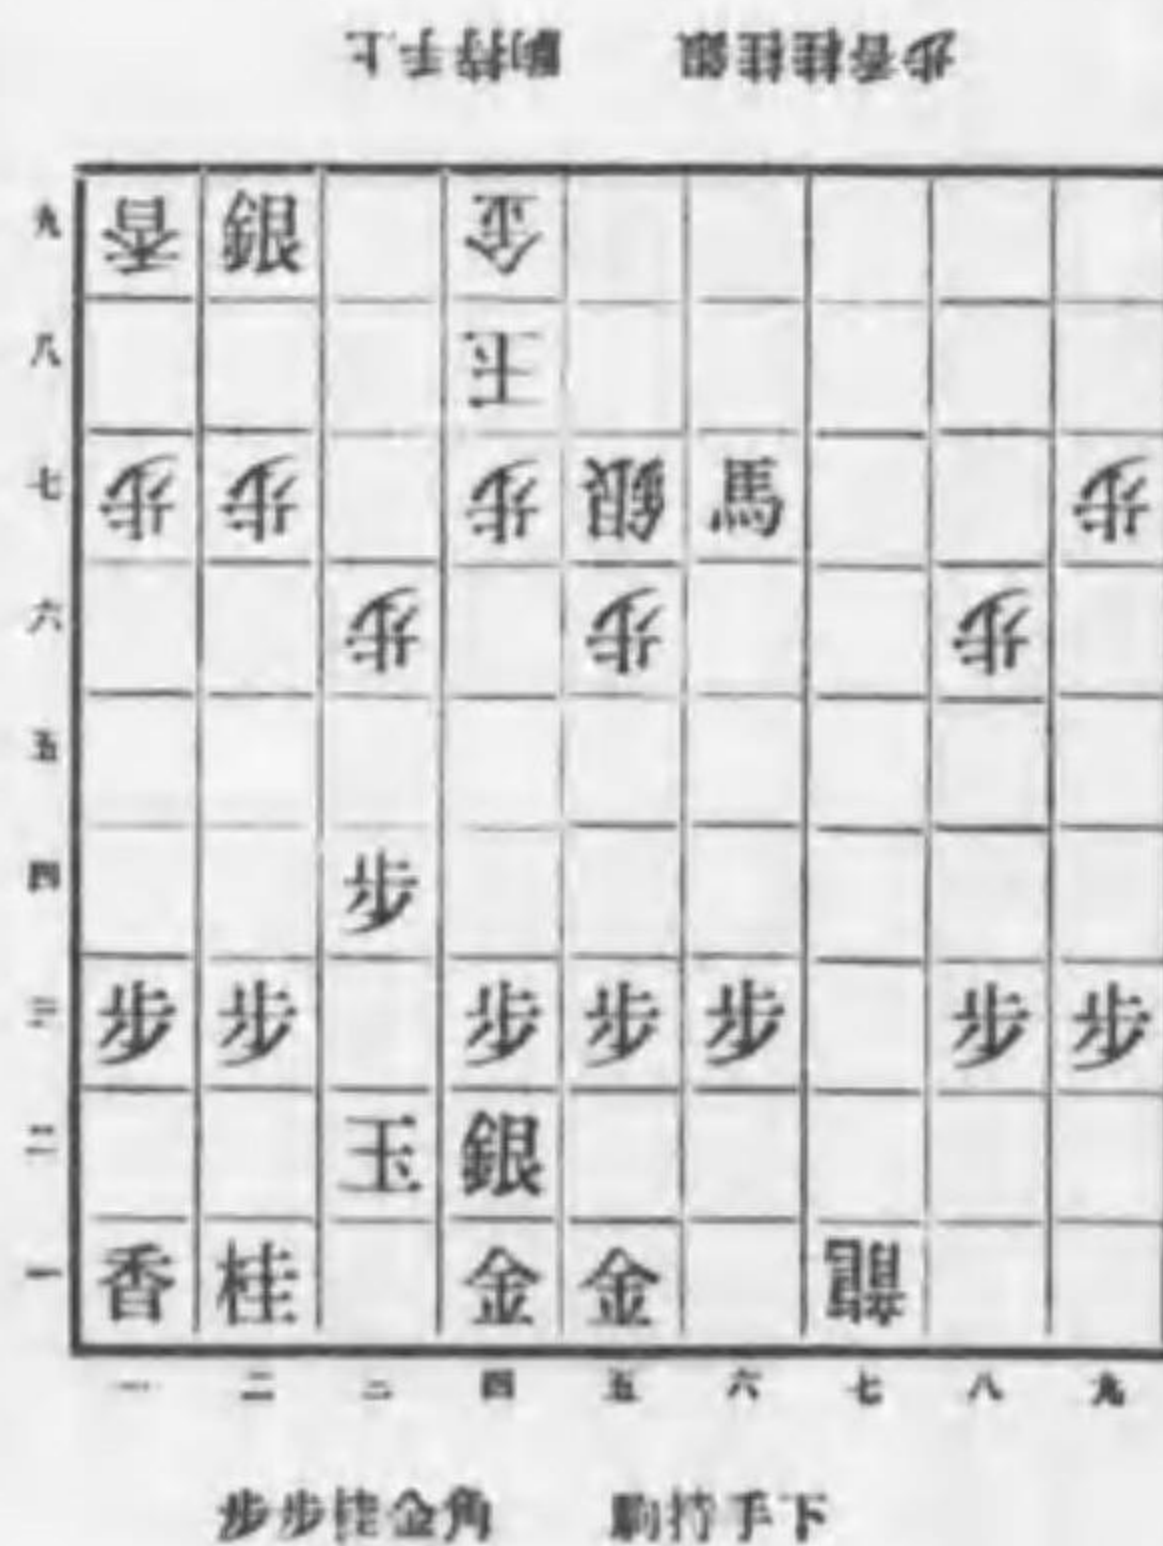 上手持駒 銀桂桂香歩
九 香 銀 金
八 玉
七 歩 歩 歩 銀 馬 歩
六 歩 歩 歩
五
四 歩
三 歩 歩 歩 歩 歩 歩 歩
二 玉 銀
一 香 桂 金 金 龍
一 二 三 四 五 六 七 八 九
下手持駒 角金桂歩歩